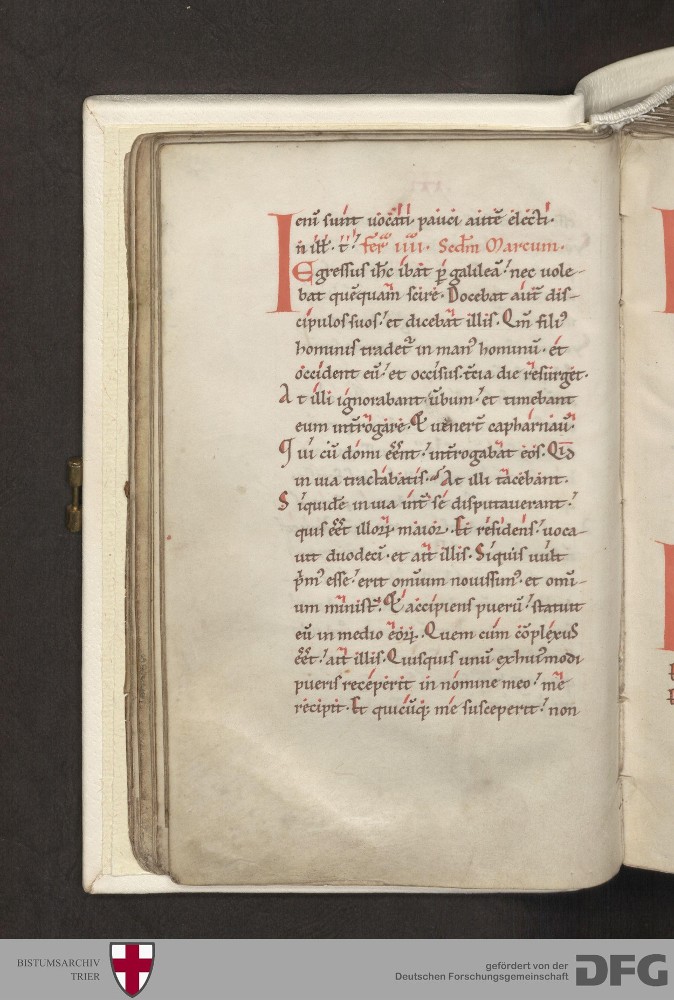 enī sunt uocati. pauci autē electi.
In illᵒ. t̄. fer̄ iiii. Secdm̄ Marcum.
Egressus ih̄c ibat p̱ galileā. nec uole-
bat quēquam̄ scire. Docebat aut̄ dis-
cipulos suos. et dicebat illis. Qm̄ fili⁹
hominis tradet᷑ in man⁹ hominū. et
occident eū. et occisus. t̄cia die resurget.
At illi ignorabant ūbum. et timebant
eum int̄rogare. Et uener̄t capharnaū.
Qui cū domi eēnt. int̄rogabat eos. Qid̄
in uia tractabatis. At illi tacebant.
Siquidē in uia int̄ se disputauerant.
quis eēt illoꝝ maior. Et residens. uoca-
uit duodecī. et ait illis. Siquis uult
p̄m⁹ esse. erit omnium nouissim⁹. et omī-
um minist̄. Et accipiens puerū. statuit
eū in medio eoꝝ. Quem cum cōplexus
eēt. ait illis. Quisquis unū ex hui⁹modi
pueris receperit in nomine meo. me
recipit. Et quicūq; me susceperit. non
BISTUMSARCHIV
TRIER
gefördert von der
Deutschen Forschungsgemeinschaft
DFG